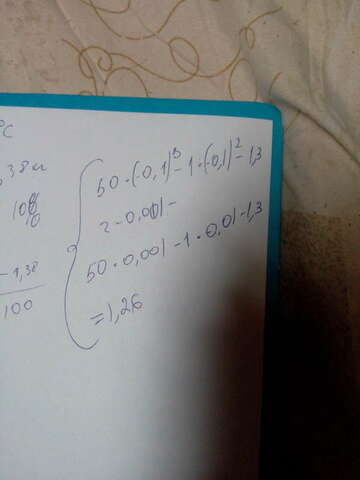 °C
,38м
100%
-1,38
100
50·(-0,1)³-1·(-0,1)²-1,3
2-0,001-
50·0,001-1·0,01-1,3
=1,26